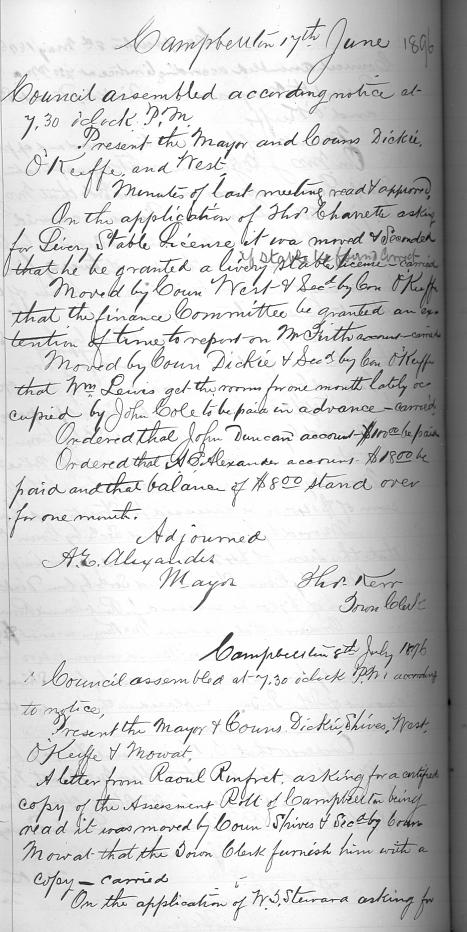 Campbellton 17th June 1896
Council assembled according notice at
7.30 oclock P.M.
Present the Mayor and Couns Dickie,
O'Keiffe, and West,
Minutes of last meeting read & approved,
On the application of Thos Charette asking
for Livery Stable License it was moved & Seconded
if stable be found correct
that he be granted a livery stable license - carried
Moved by Coun West & Secd by Con O'Keiffe
that the finance Committee be granted an ex
tention of time to report on Mr Firth account - carried
Moved by Coun Dickie & Secd by Con O'Keiffe
that Wm Lewis get the rooms for one month lately oc
cupied by John Cole to be paid in advance - carried
Ordered that John Duncan account $10000 be paid
Ordered that A.E. Alexander account $1800 be
paid and that balance of $800 stand over
for one month.
Adjourned
A.E. Alexander
Mayor
Thos Kerr
Town Clerk
Campbellton 8th July 1896
Council assembled at 7.30 oclock P.M. according
to notice,
Present the Mayor & Couns Dickie, Shives, West,
O'Keiffe & Mowat,
A letter from Raoul Rinfret, asking for a certified
copy of the Assessment Roll of Campbellton being
read it was moved by Coun Shives & Secd by Coun
Mowat that the Town Clerk furnish him with a
copy - carried
On the application of W.S. asking for